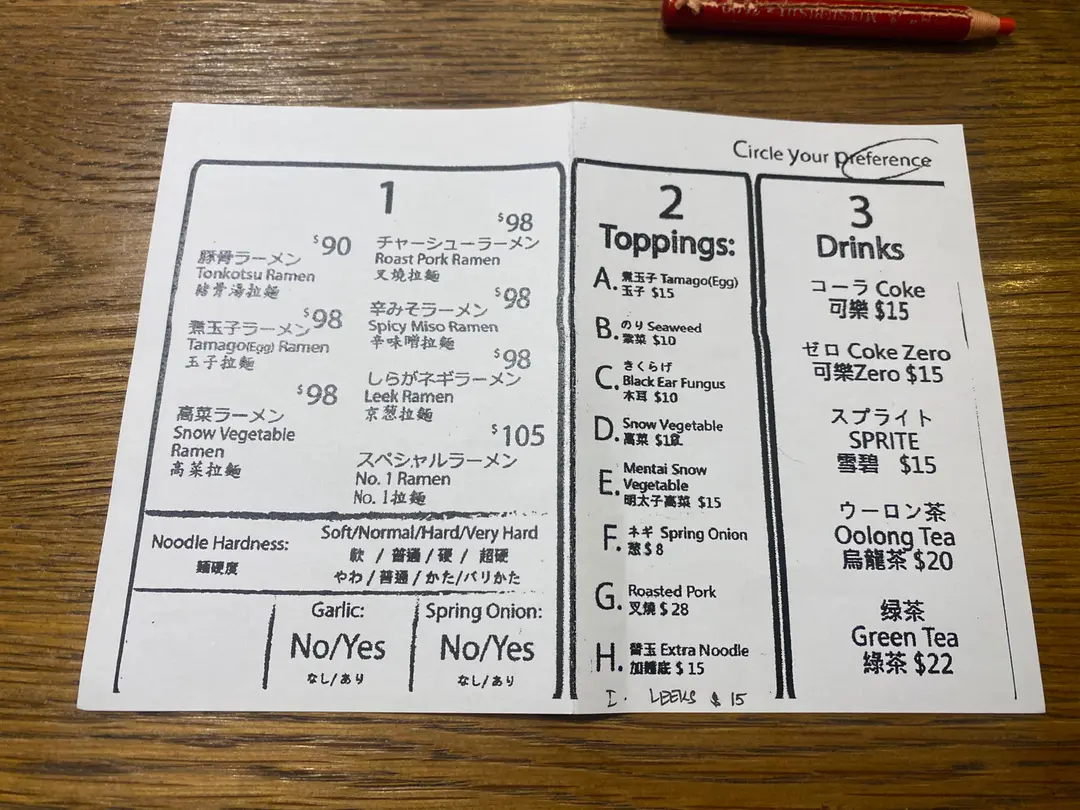 Circle your preference
1
$90
豚骨ラーメン
Tonkotsu Ramen
豬骨湯拉麵
$98
煮玉子ラーメン
Tamago(Egg) Ramen
玉子拉麵
$98
高菜ラーメン
Snow Vegetable
Ramen
高菜拉麵
$98
チャーシューラーメン
Roast Pork Ramen
叉燒拉麵
$98
辛みそラーメン
Spicy Miso Ramen
辛味噌拉麵
$98
しらがネギラーメン
Leek Ramen
京葱拉麵
$105
スペシャルラーメン
No. 1 Ramen
No. 1拉麵
Noodle Hardness:
麵硬度
Soft/Normal/Hard/Very Hard
軟 / 普通 / 硬 / 超硬
やわ / 普通 / かた/バリかた
Garlic:
No/Yes
なし/あり
Spring Onion:
No/Yes
なし/あり
2
Toppings:
A. 煮玉子 Tamago(Egg)
玉子 $15
B. のり Seaweed
紫菜 $10
C. きくらげ
Black Ear Fungus
木耳 $10
D. Snow Vegetable
高菜
E. Mentai Snow
Vegetable
明太子高菜 $15
F. ネギ Spring Onion
葱 $ 8
G. Roasted Pork
叉燒 $ 28
H. 替玉 Extra Noodle
加麵底 $ 15
I. LEEKS $ 15
3
Drinks
コーラ Coke
可樂 $15
ゼロ Coke Zero
可樂Zero $15
スプライト
SPRITE
雪碧 $15
ウーロン茶
Oolong Tea
烏龍茶 $20
绿茶
Green Tea
綠茶 $22